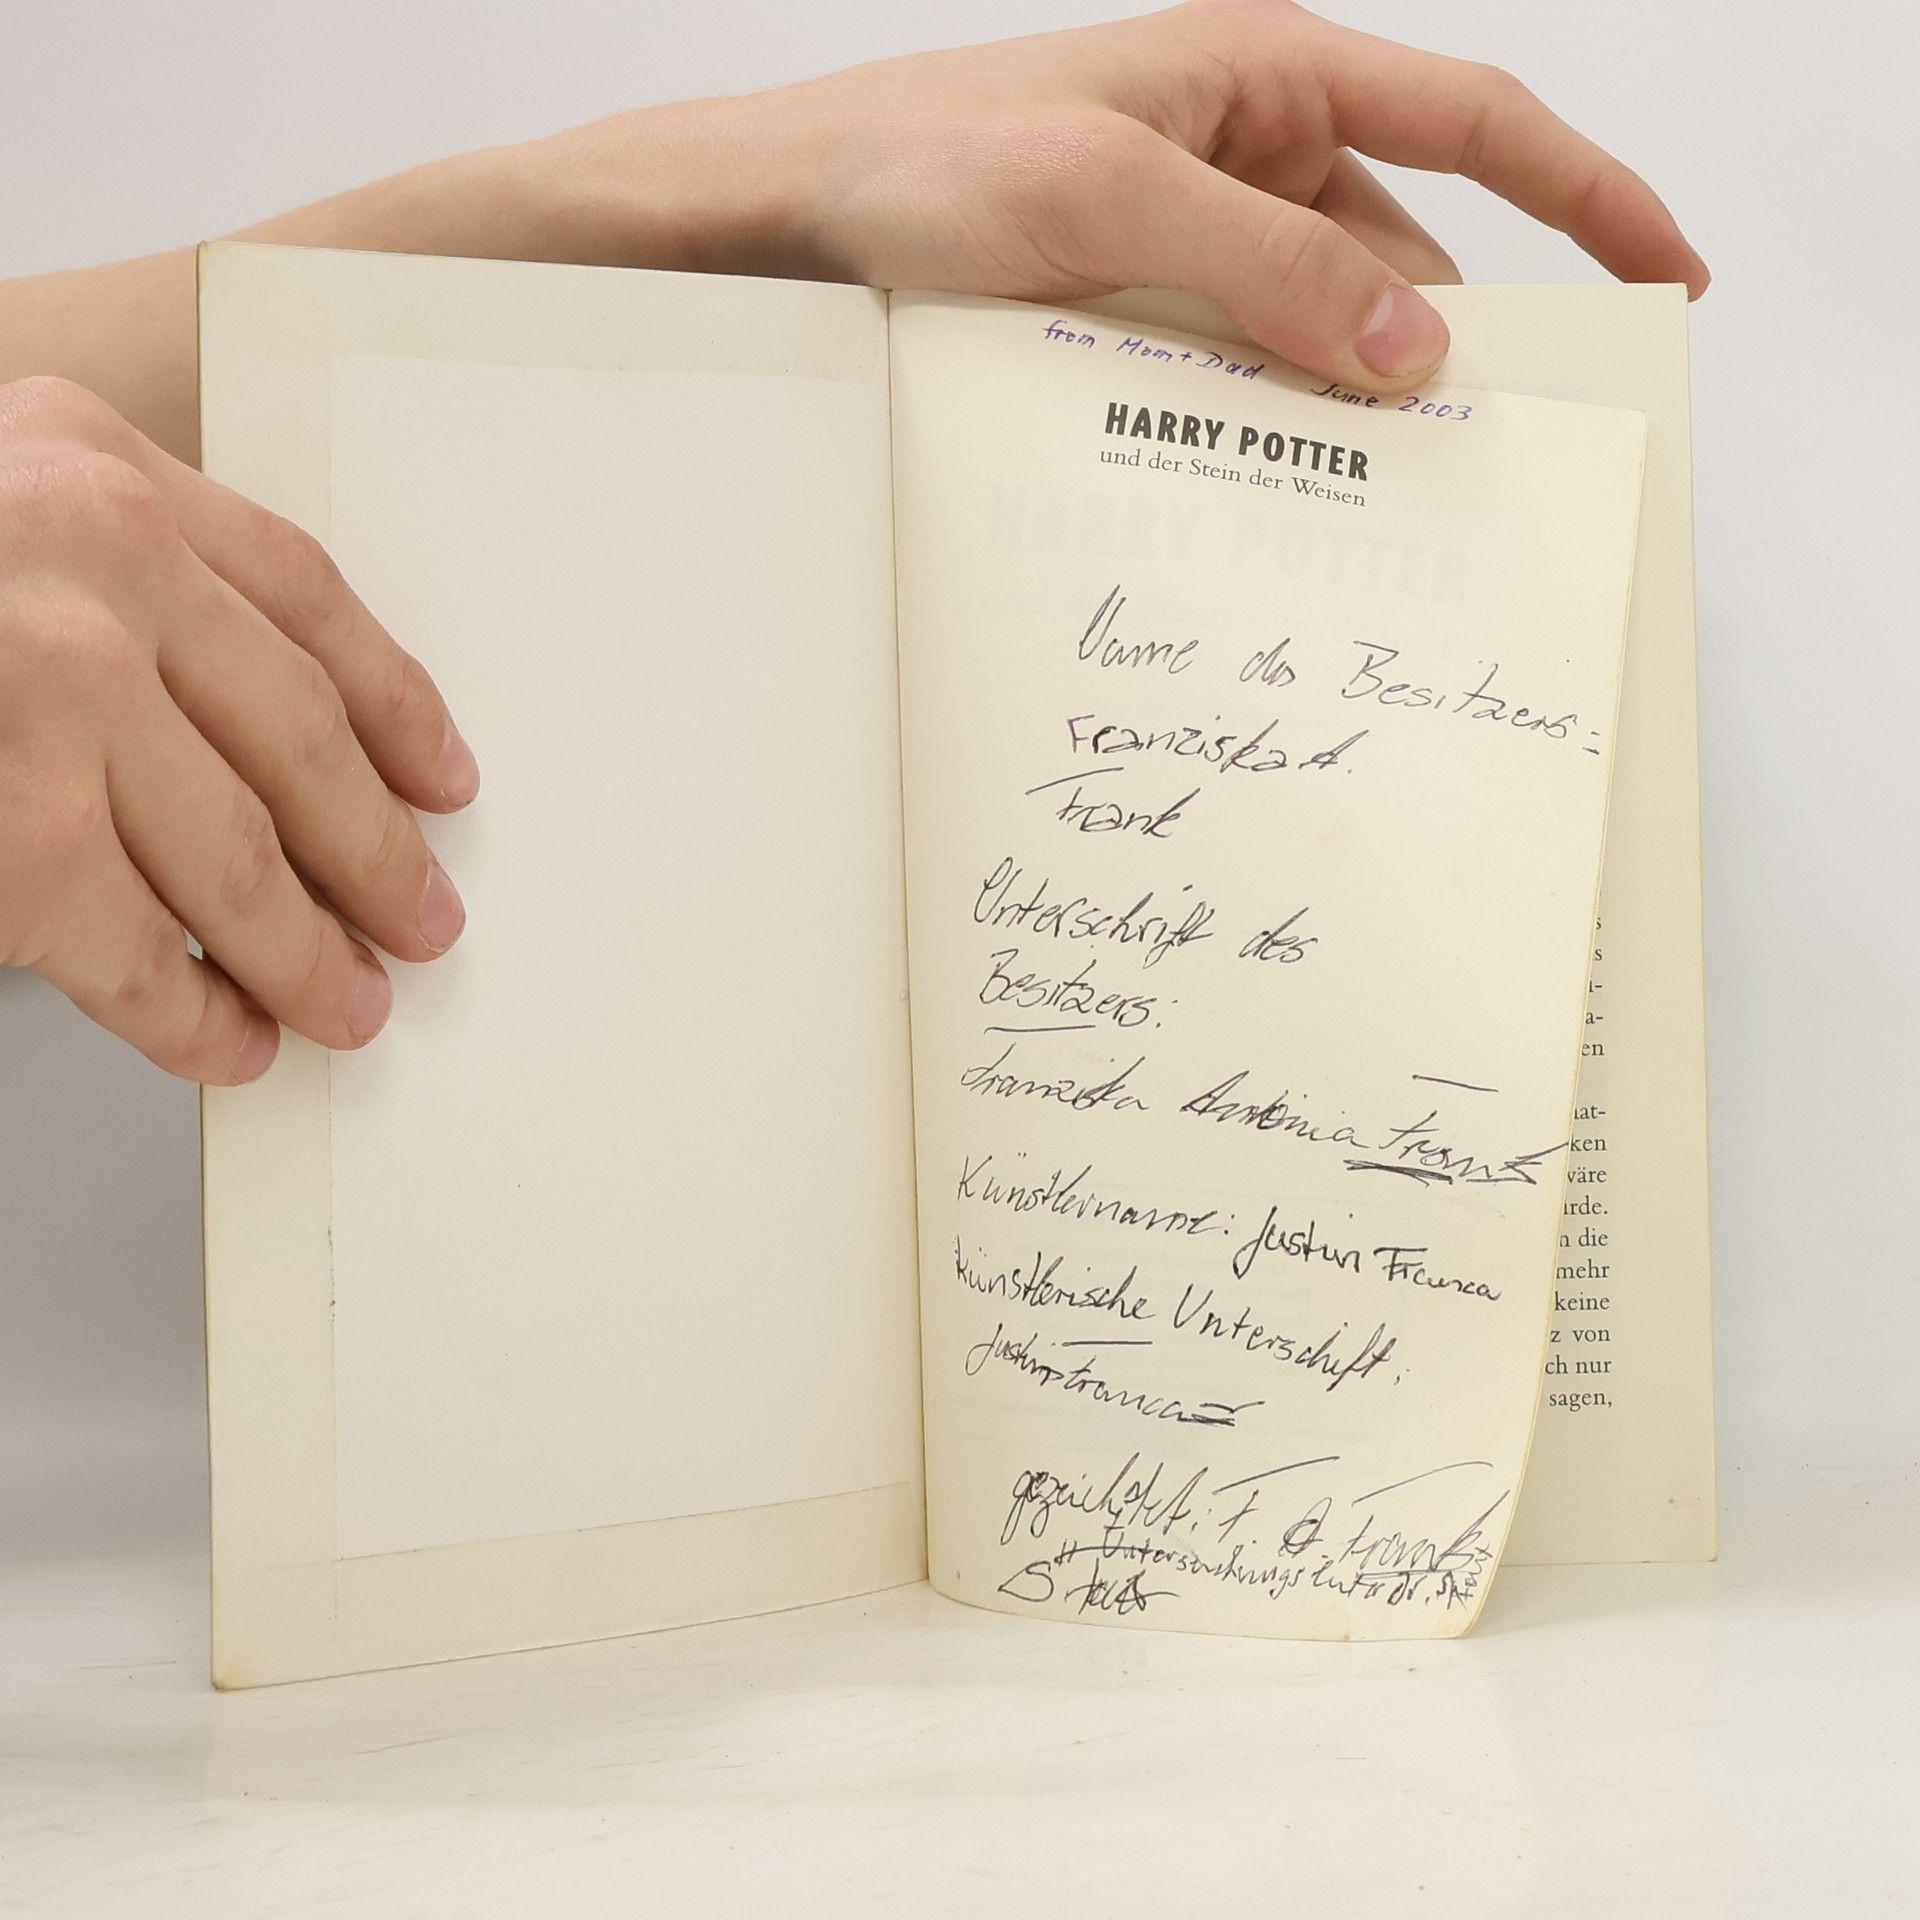 from Mom + Dad June 2003
HARRY POTTER
und der Stein der Weisen
Name des Besitzers:
Franziska A.
Frank
Unterschrift des
Besitzers:
Franziska Antonia Frank
Künstlername: Justin Franca
Künstlerische Unterschift:
Justin Franca
gezeichtet: F. A. Frank
s
s
i-
a-
en
hat-
ken
wäre
urde.
n die
mehr
keine
z von
ch nur
sagen,